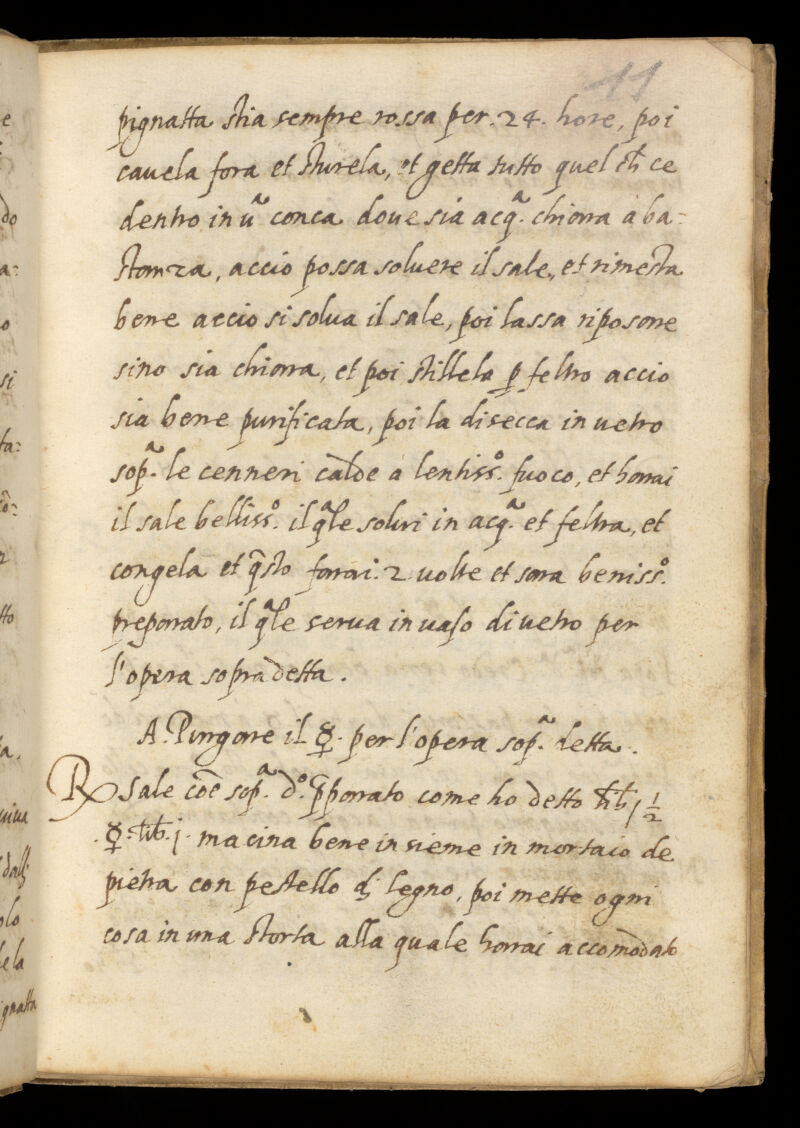 11
pignatta stia sempre rossa per. 24. hore, poi
cauela fora et sturela, et getta tutto quel ch̃ ce
dentro in ũa conca doue sia acqᵃ. chiara à ba=
stanza, accio possa soluere il sale, et rimesta
bene accio si solua il sale, poi lassa riposare
sino sia chiara, et poi stillela ꝑ feltro accio
sia bene purificata, poi la disecca in uetro
sopᵃ. le cenneri calde à lentissᵒ. fuoco, et harai
il sale bellissᵒ. il qᵃle solui in acqᵃ. et feltra, et
congela et q̃sto farai. 2 uolte et sara benissᵒ.
preparato, il qᵃle serua in uaso di uetro per
l'opera sopradetta.
A. Pungare il ☿. per l'opera sopᵃ. detta.
℞ Sale coẽ sopᵃ. dᵒ. p̃parato come ho detto lib. j ½
☿. lib. j. macina bene insieme in mortaio de
pietra con pestello di legno, poi mette ogni
cosa in una storta alla quale harai accomodato
do
a:
o
si
ta:
tto
olo
ela
gnatta